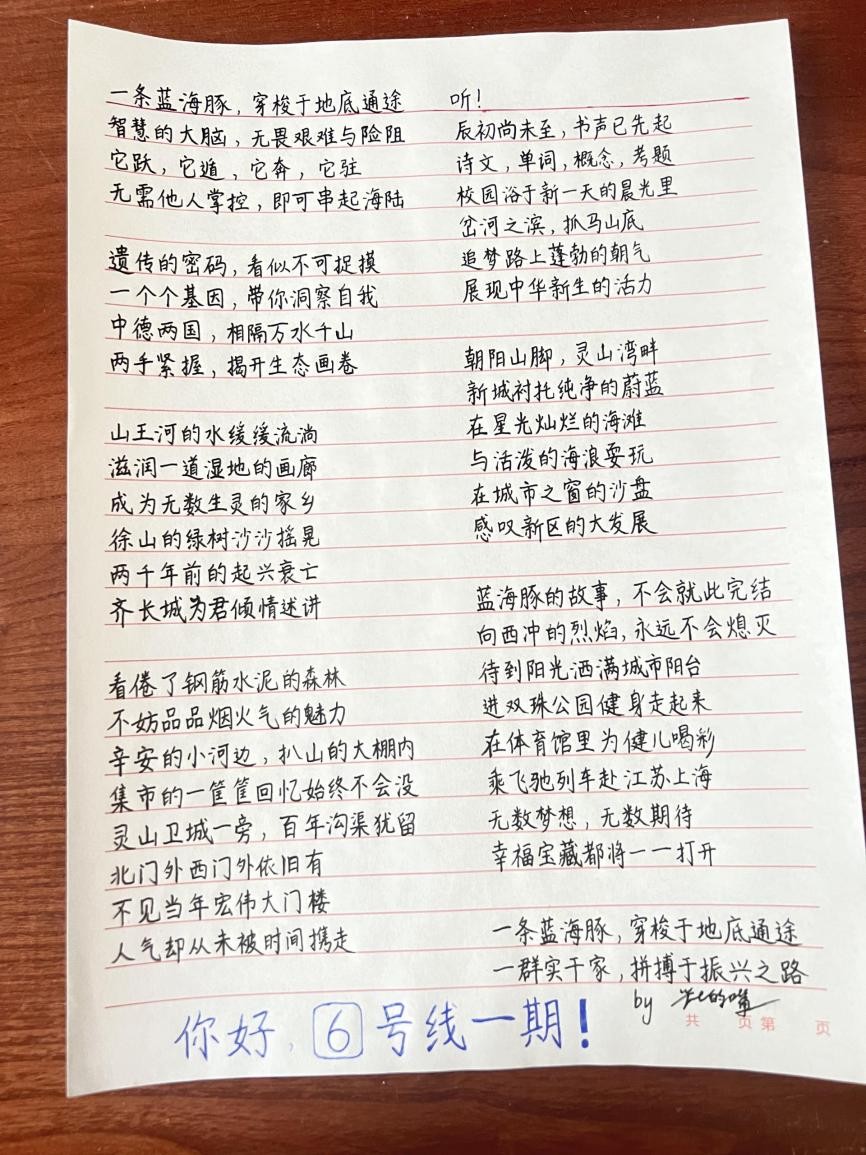 一条蓝海豚，穿梭于地底通途
智慧的大脑，无畏艰难与险阻
它跃，它遁，它奔，它驻
无需他人掌控，即可串起海陆
遗传的密码，看似不可捉摸
一个个基因，带你洞察自我
中德两国，相隔万水千山
两手紧握，揭开生态画卷
山王河的水缓缓流淌
滋润一道湿地的画廊
成为无数生灵的家乡
徐山的绿树沙沙摇晃
两千年前的起兴衰亡
齐长城为君倾情述讲
看倦了钢筋水泥的森林
不妨品品烟火气的魅力
辛安的小河边，扒山的大棚内
集市的一筐筐回忆始终不会没
灵山卫城一旁，百年沟渠犹留
北门外西门外依旧有
不见当年宏伟大门楼
人气却从未被时间携走
听！
辰初尚未至，书声已先起
诗文，单词，概念，考题
校园浴于新一天的晨光里
岔河之滨，抓马山底
追梦路上蓬勃的朝气
展现中华新生的活力
朝阳山脚，灵山湾畔
新城衬托纯净的蔚蓝
在星光灿烂的海滩
与活泼的海浪耍玩
在城市之窗的沙盘
感叹新区的大发展
蓝海豚的故事，不会就此完结
向西冲的烈焰，永远不会熄灭
待到阳光洒满城市阳台
进双珠公园健身走起来
在体育馆里为健儿喝彩
乘飞驰列车赴江苏上海
无数梦想，无数期待
幸福宝藏都将一一打开
一条蓝海豚，穿梭于地底通途
一群实干家，拼搏于振兴之路
by
共 页 第 页
你好，6号线一期！